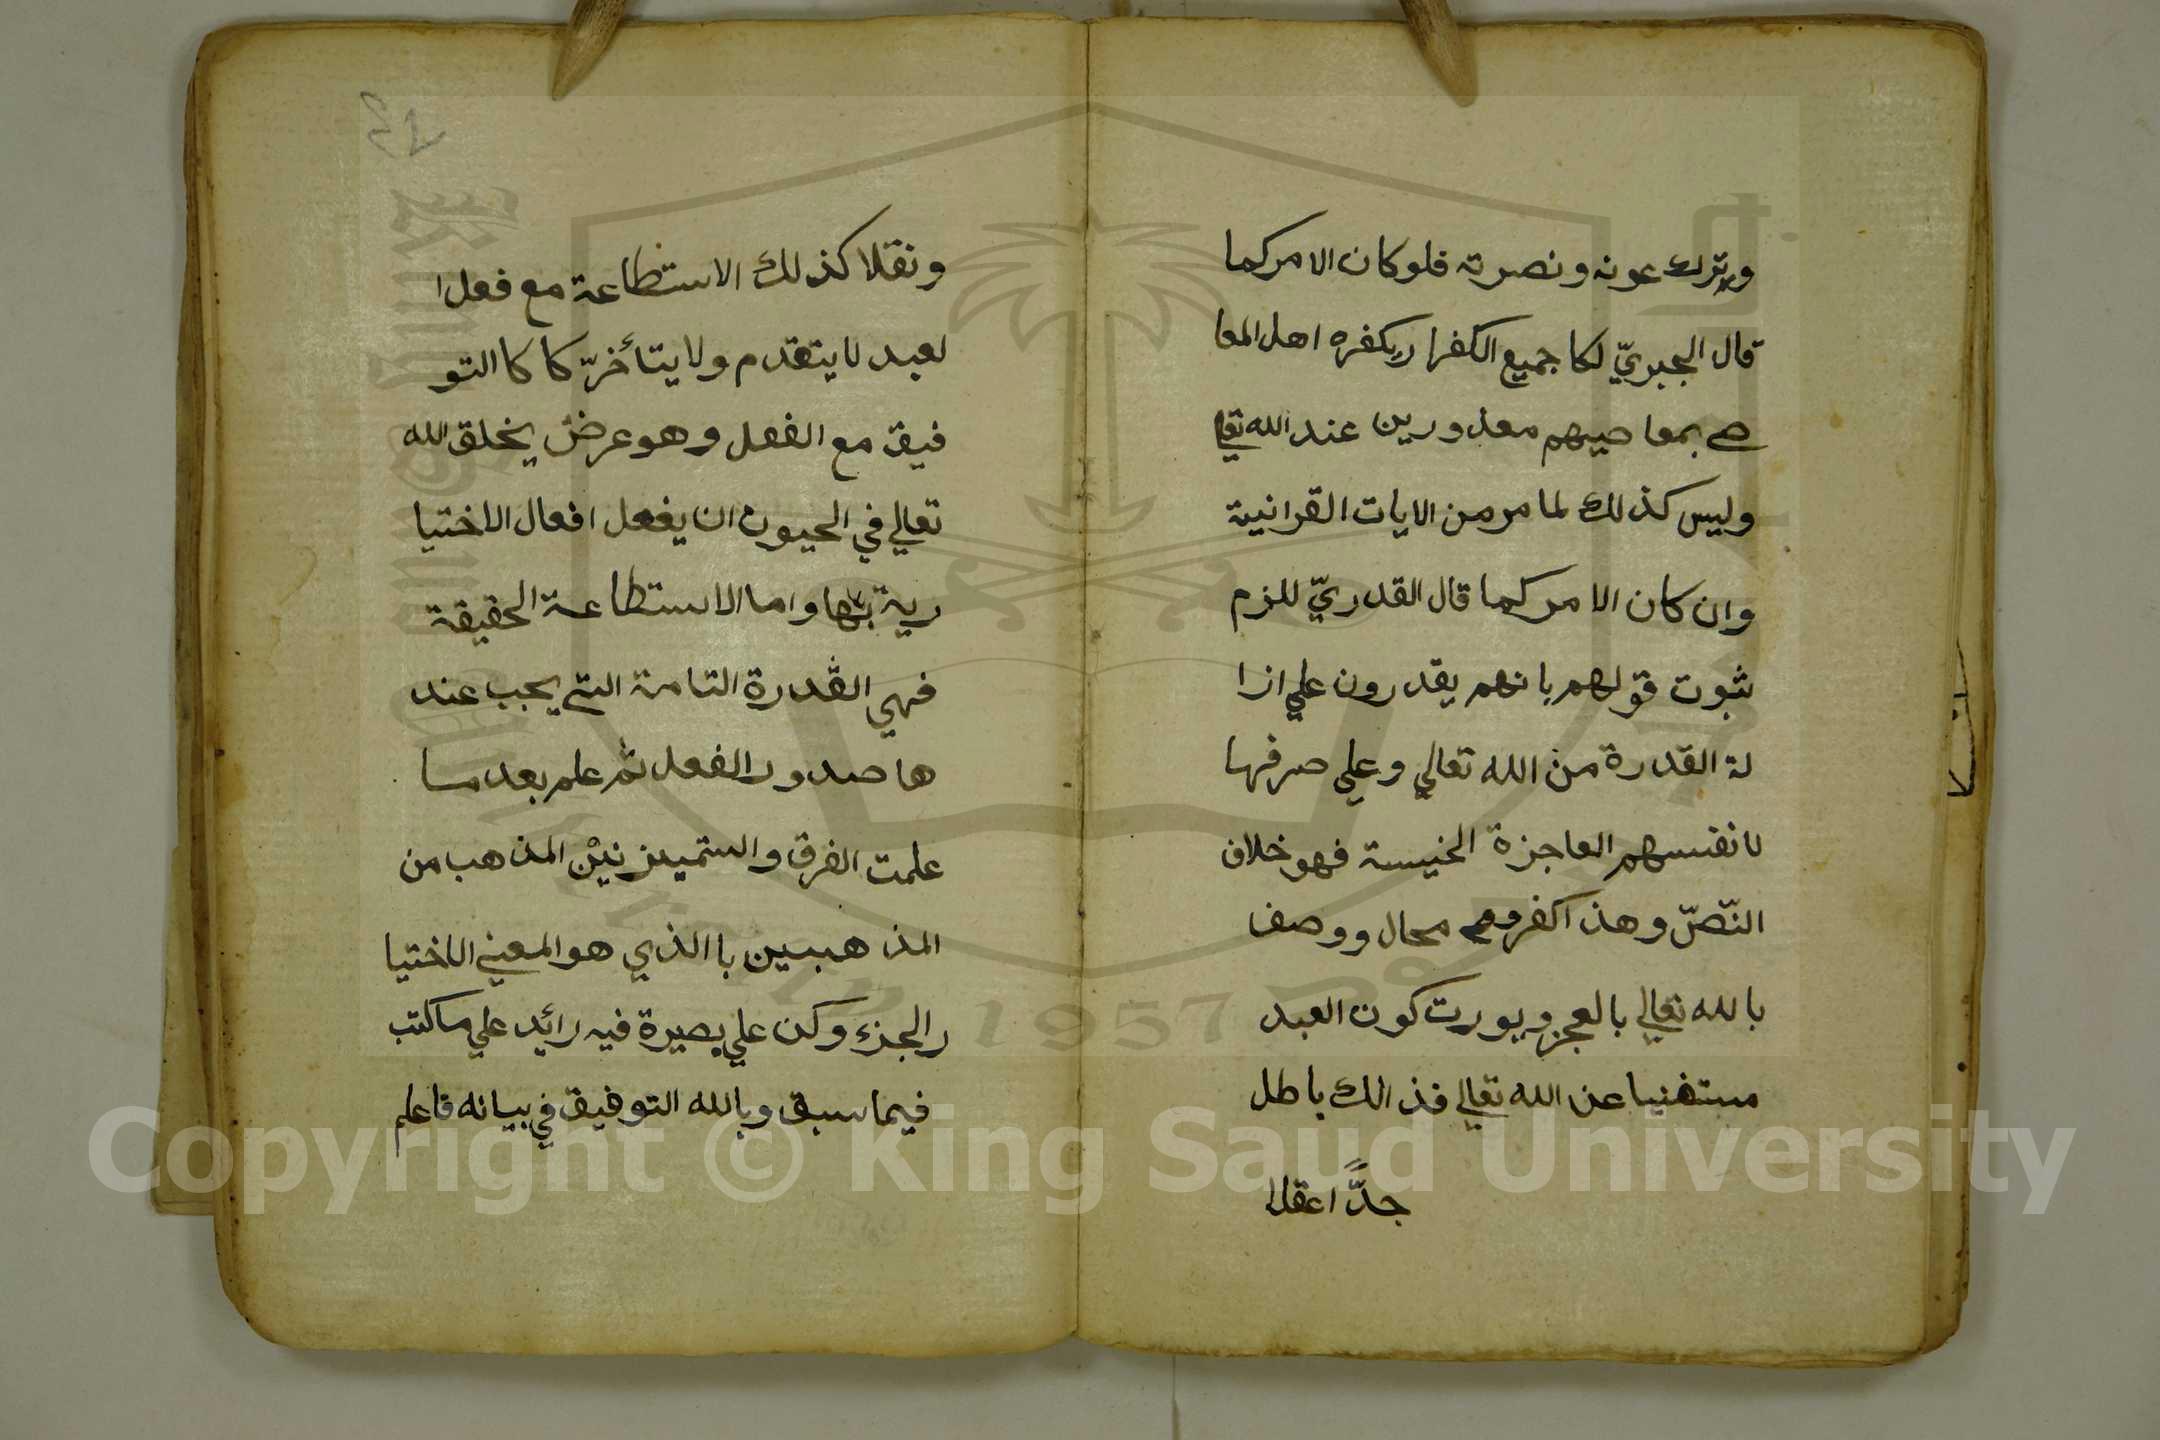 ويترك عونه ونصرته فلوكان الامركما
قال الجبريّ لكا جميع الكفرا ربكفره اهل المعا
صى بمعاصيهم معذورين عند الله تعالى
وليس كذلك لما مر من الايات القرانية
وان كان الا مر كما قال القدريّ للزم
ثبوت قولهم بانهم يقدرون علي ازا
لة القدرة من الله تعالي وعلي صرفها
لانفسهم العاجزة الخنيسة فهو خلاف
النّصّ وهذ اكفر محال ووصف
بالله تعالي بالعجز ويورث كون العبد
مستغنيا عن الله تعالي فذالك باطل
جدًّا عقلا
ونقلا كذلك الاستطاعة مع فعل ا
لعبد لا يتقدم ولا يتأخرّ كا كا التو
فيق مع الفعل وهو عرض يخلق الله
تعالي في الحيون ان يفعل افعال الاختيا
رية بها واما الاستطاعة الحقيقة
فهي القدرة التامة التي يجب عند
ها صدور الفعل ثم علم بعد ما
علمت الفرق والتميز نيْن المذهب من
المذ هبين باالذي هو المعني الاختيا
ر الجزء وكن علي بصيرة فيه رائد علي ما كتب
فيما سبق وبالله التوفيق في بيانه فاعلم
1957
Copyright © King Saud University